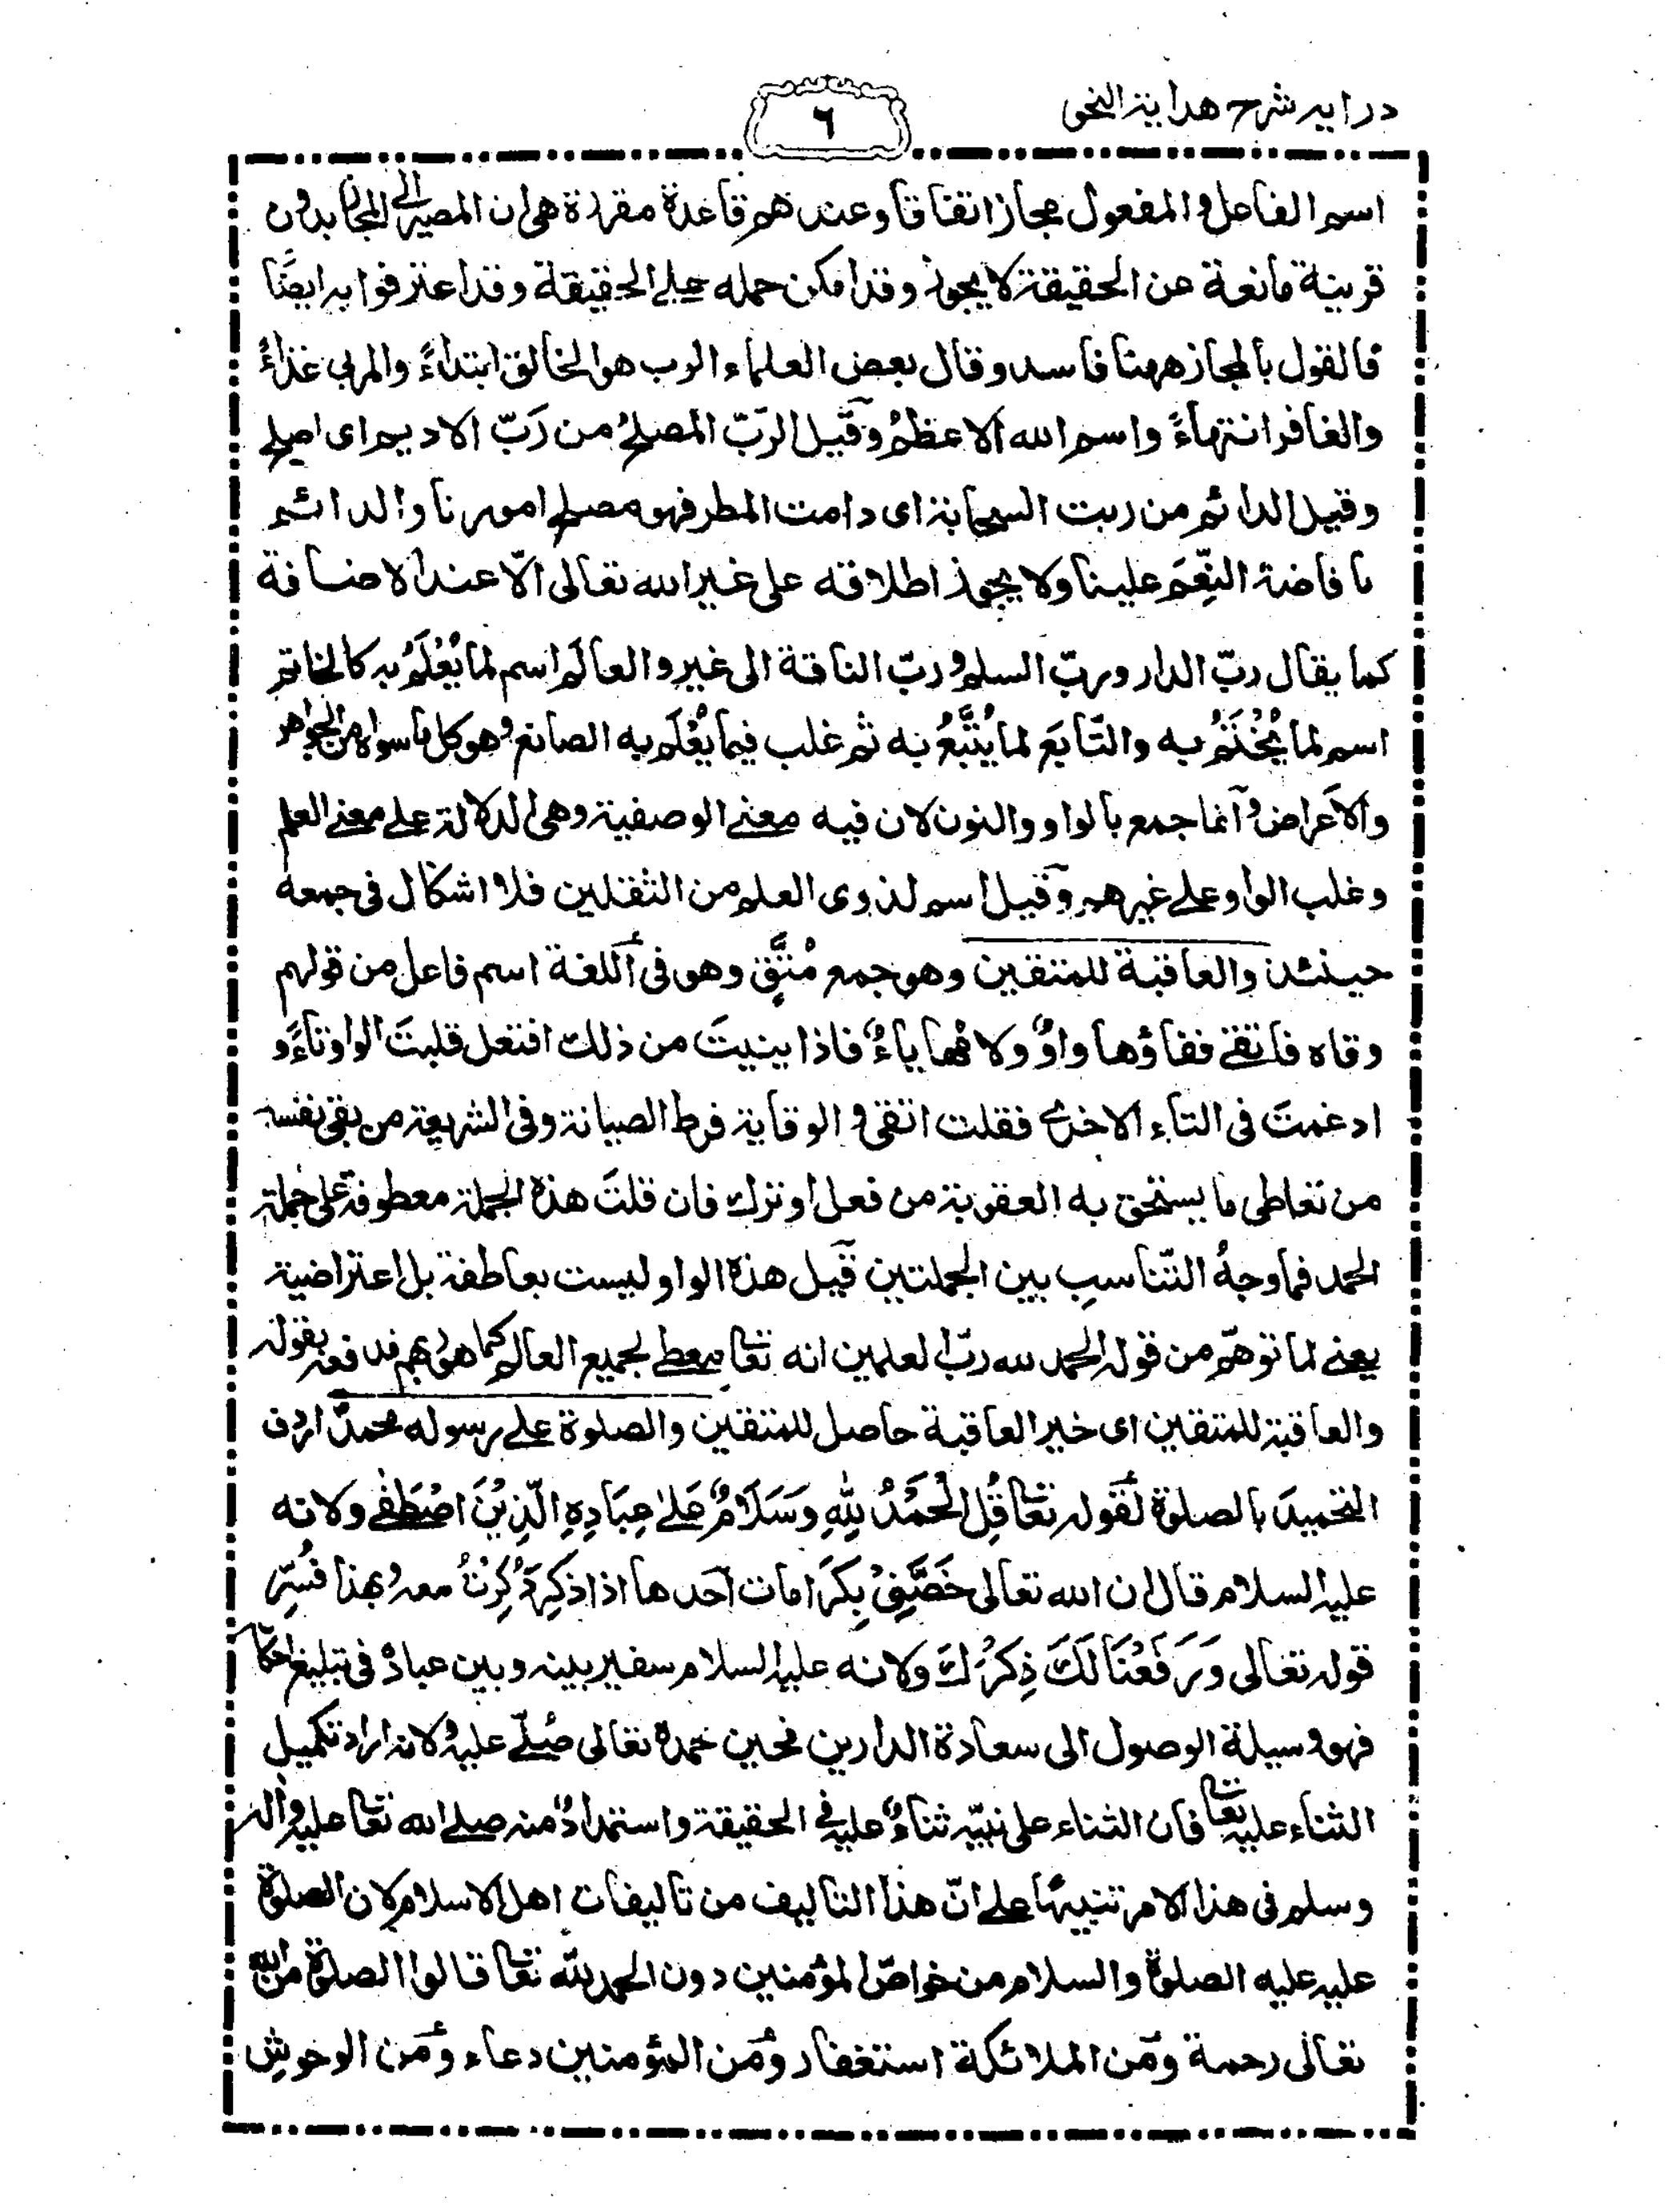 درايه شرح هداية النحو
٦
اسم الفاعل والمفعول مجاز اتفاقا وعندهم قاعدة مقررة هى ان المصير الى المجاز بدون
قرينة مانعة عن الحقيقة لا يجوز وقد امكن حمله على الحقيقة وقد اعترفوا به ايضًا
فالقول بالمجاز ههنا فاسد وقال بعض العلماء الرب هو الخالق ابتداءً والمربى غذاءً
والغافر انتهاءً واسم الله الاعظم وقيل الرّبّ المصلحُ من رَبّ الاديم اى اصلح
وقيل الدائم من ربت السحابة اى دامت المطر فهو مصلح امورنا والدائم
بافاضة النِّعَم علينا ولا يجوز اطلاقه على غير الله تعالى الّا عند الاضافة
كما يقال ربّ الدار وربّ السلم وربّ الناقة الى غير والعالَم اسم لما يُعْلَمُ به كالخاتم
اسم لما يُخْتَمُ به والتّابَع لما يُتَّبَعُ به ثم غلب فيما يُعْلَم به الصانع وهو كل ما سواه من الجواهر
والاَعراض وانما جمع بالواو والنون لان فيه معنى الوصفية وهى الدلالة على معنى العلم
وغلب الواو على غيرهم وقيل اسم لذوى العلم من الثقلين فلا اشكال فى جمعه
حينئذ والعاقبة للمتقين وهو جمع مُتَّقٍ وهو فى اللغة اسم فاعل من قولهم
وقاه فاتقى ففاؤها واوٌ ولامها ياءٌ فاذا بنيتَ من ذلك افتعل قلبتَ الواو تاءً و
ادغمتَ فى التاء الاخرى فقلت اتقى والوقاية فرط الصيانة وفى الشريعة من يقى نفسه
من تعاطى ما يستحق به العقوبة من فعل او ترك فان قلتَ هذه الجملة معطوفة على جملة
الحمد فما وجهُ التّناسبِ بين الجملتين قيل هذه الواو ليست بعاطفة بل اعتراضية
يعنى لما توهّم من قوله الحمد لله ربّ العلمين انه تعا معطى لجميع العالم كما هو ربهم فدفعه بقوله
والعاقبة للمتقين اى خير العاقبة حاصل للمتقين والصلوة على رسوله محمدٍ اردف
التحميدَ بالصلوة لقوله تعا قُلِ الْحَمْدُ لِلّٰهِ وَسَلَامٌ عَلىٰ عِبَادِهِ الَّذِيْنَ اصْطَفٰى ولانه
عليه السلام قال ان الله تعالى خَصَّنِىْ بِكَرَامات احدها اذا ذُكِرَ ذُكِرْتُ معه وبهذا فُسِّرَ
قوله تعالى وَرَفَعْنَا لَكَ ذِكْرَكَ ولانه عليه السلام سفير بينه وبين عباده فى تبليغ احكا
فهو وسيلة الوصول الى سعادة الدارين فحين حمده تعالى صُلّى عليه ولانه اراد تكميل
الثناء عليه تعا فان الثناء على نبيّه ثناءٌ عليه فى الحقيقة واستمدادٌ منه صلى الله تعا عليه واله
وسلم فى هذا الامر تنبيهًا على انّ هذا التاليف من تاليفات اهل الاسلام لان الصلوة
عليه عليه الصلوة والسلام من خواصّ المؤمنين دون الحمد لله تعا قالوا الصلوة من الله
تعالى رحمة ومن الملائكة استغفار ومن المؤمنين دعاء ومن الوحوش